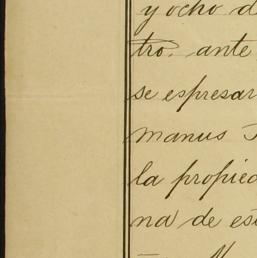 y ocho d
tro. ante
se espresar
manus
la propied
na de es